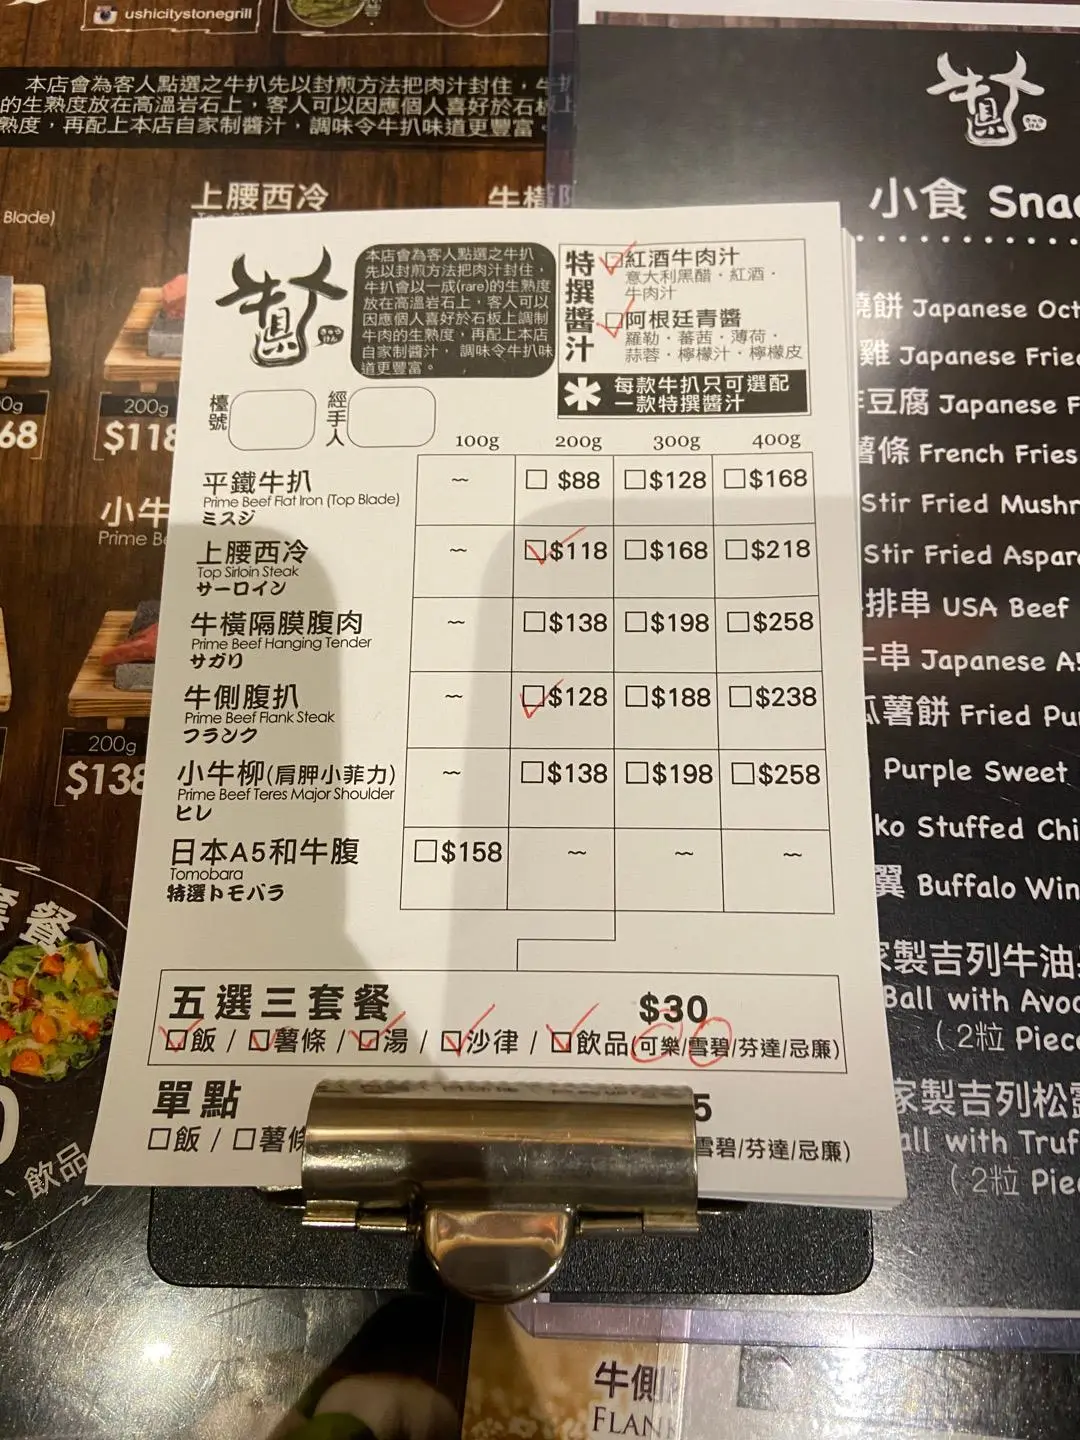 ushicitystonegrill
本店會為客人點選之牛扒先以封煎方法把肉汁封住，牛扒
的生熟度放在高溫岩石上，客人可以因應個人喜好於石板上
熟度，再配上本店自家制醬汁，調味令牛扒味道更豐富。
Blade)
上腰西冷
牛橫隔
200g
$118
68
小牛
Prime Be
200g
$138
套餐
飲品
小食 Snac
燒餅 Japanese Oct
雞 Japanese Fried
豆腐 Japanese F
薯條 French Fries
Stir Fried Mushr
Stir Fried Aspara
排串 USA Beef
牛串 Japanese A5
瓜薯餅 Fried Pu
Purple Sweet
ko Stuffed Chi
翼 Buffalo Win
家製吉列牛油
Ball with Avoc
（2粒 Piece
家製吉列松露
all with Truf
（2粒 Pie
牛具
本店會為客人點選之牛扒
先以封煎方法把肉汁封住，
牛扒會以一成(rare)的生熟度
放在高溫岩石上，客人可以
因應個人喜好於石板上調制
牛肉的生熟度，再配上本店
自家制醬汁， 調味令牛扒味
道更豐富。
特撰醬汁
□紅酒牛肉汁
意大利黑醋・紅酒・
牛肉汁
□阿根廷青醬
羅勒・蕃茜・薄荷・
蒜蓉・檸檬汁・檸檬皮
* 每款牛扒只可選配
一款特撰醬汁
檯號
經手人
100g 200g 300g 400g
平鐵牛扒 ~ □ $88 □$128 □$168
Prime Beef Flat Iron (Top Blade)
ミスジ
上腰西冷 ~ □$118 □$168 □$218
Top Sirloin Steak
サーロイン
牛橫隔膜腹肉 ~ □$138 □$198 □$258
Prime Beef Hanging Tender
サガリ
牛側腹扒 ~ □$128 □$188 □$238
Prime Beef Flank Steak
フランク
小牛柳(肩胛小菲力) ~ □$138 □$198 □$258
Prime Beef Teres Major Shoulder
ヒレ
日本A5和牛腹 □$158 ~ ~ ~
Tomobara
特選トモバラ
五選三套餐 $30
□飯 / □薯條 / □湯 / □沙律 / □飲品(可樂/雪碧/芬達/忌廉)
單點 5
□飯 / □薯條 雪碧/芬達/忌廉)
牛側
FLANK